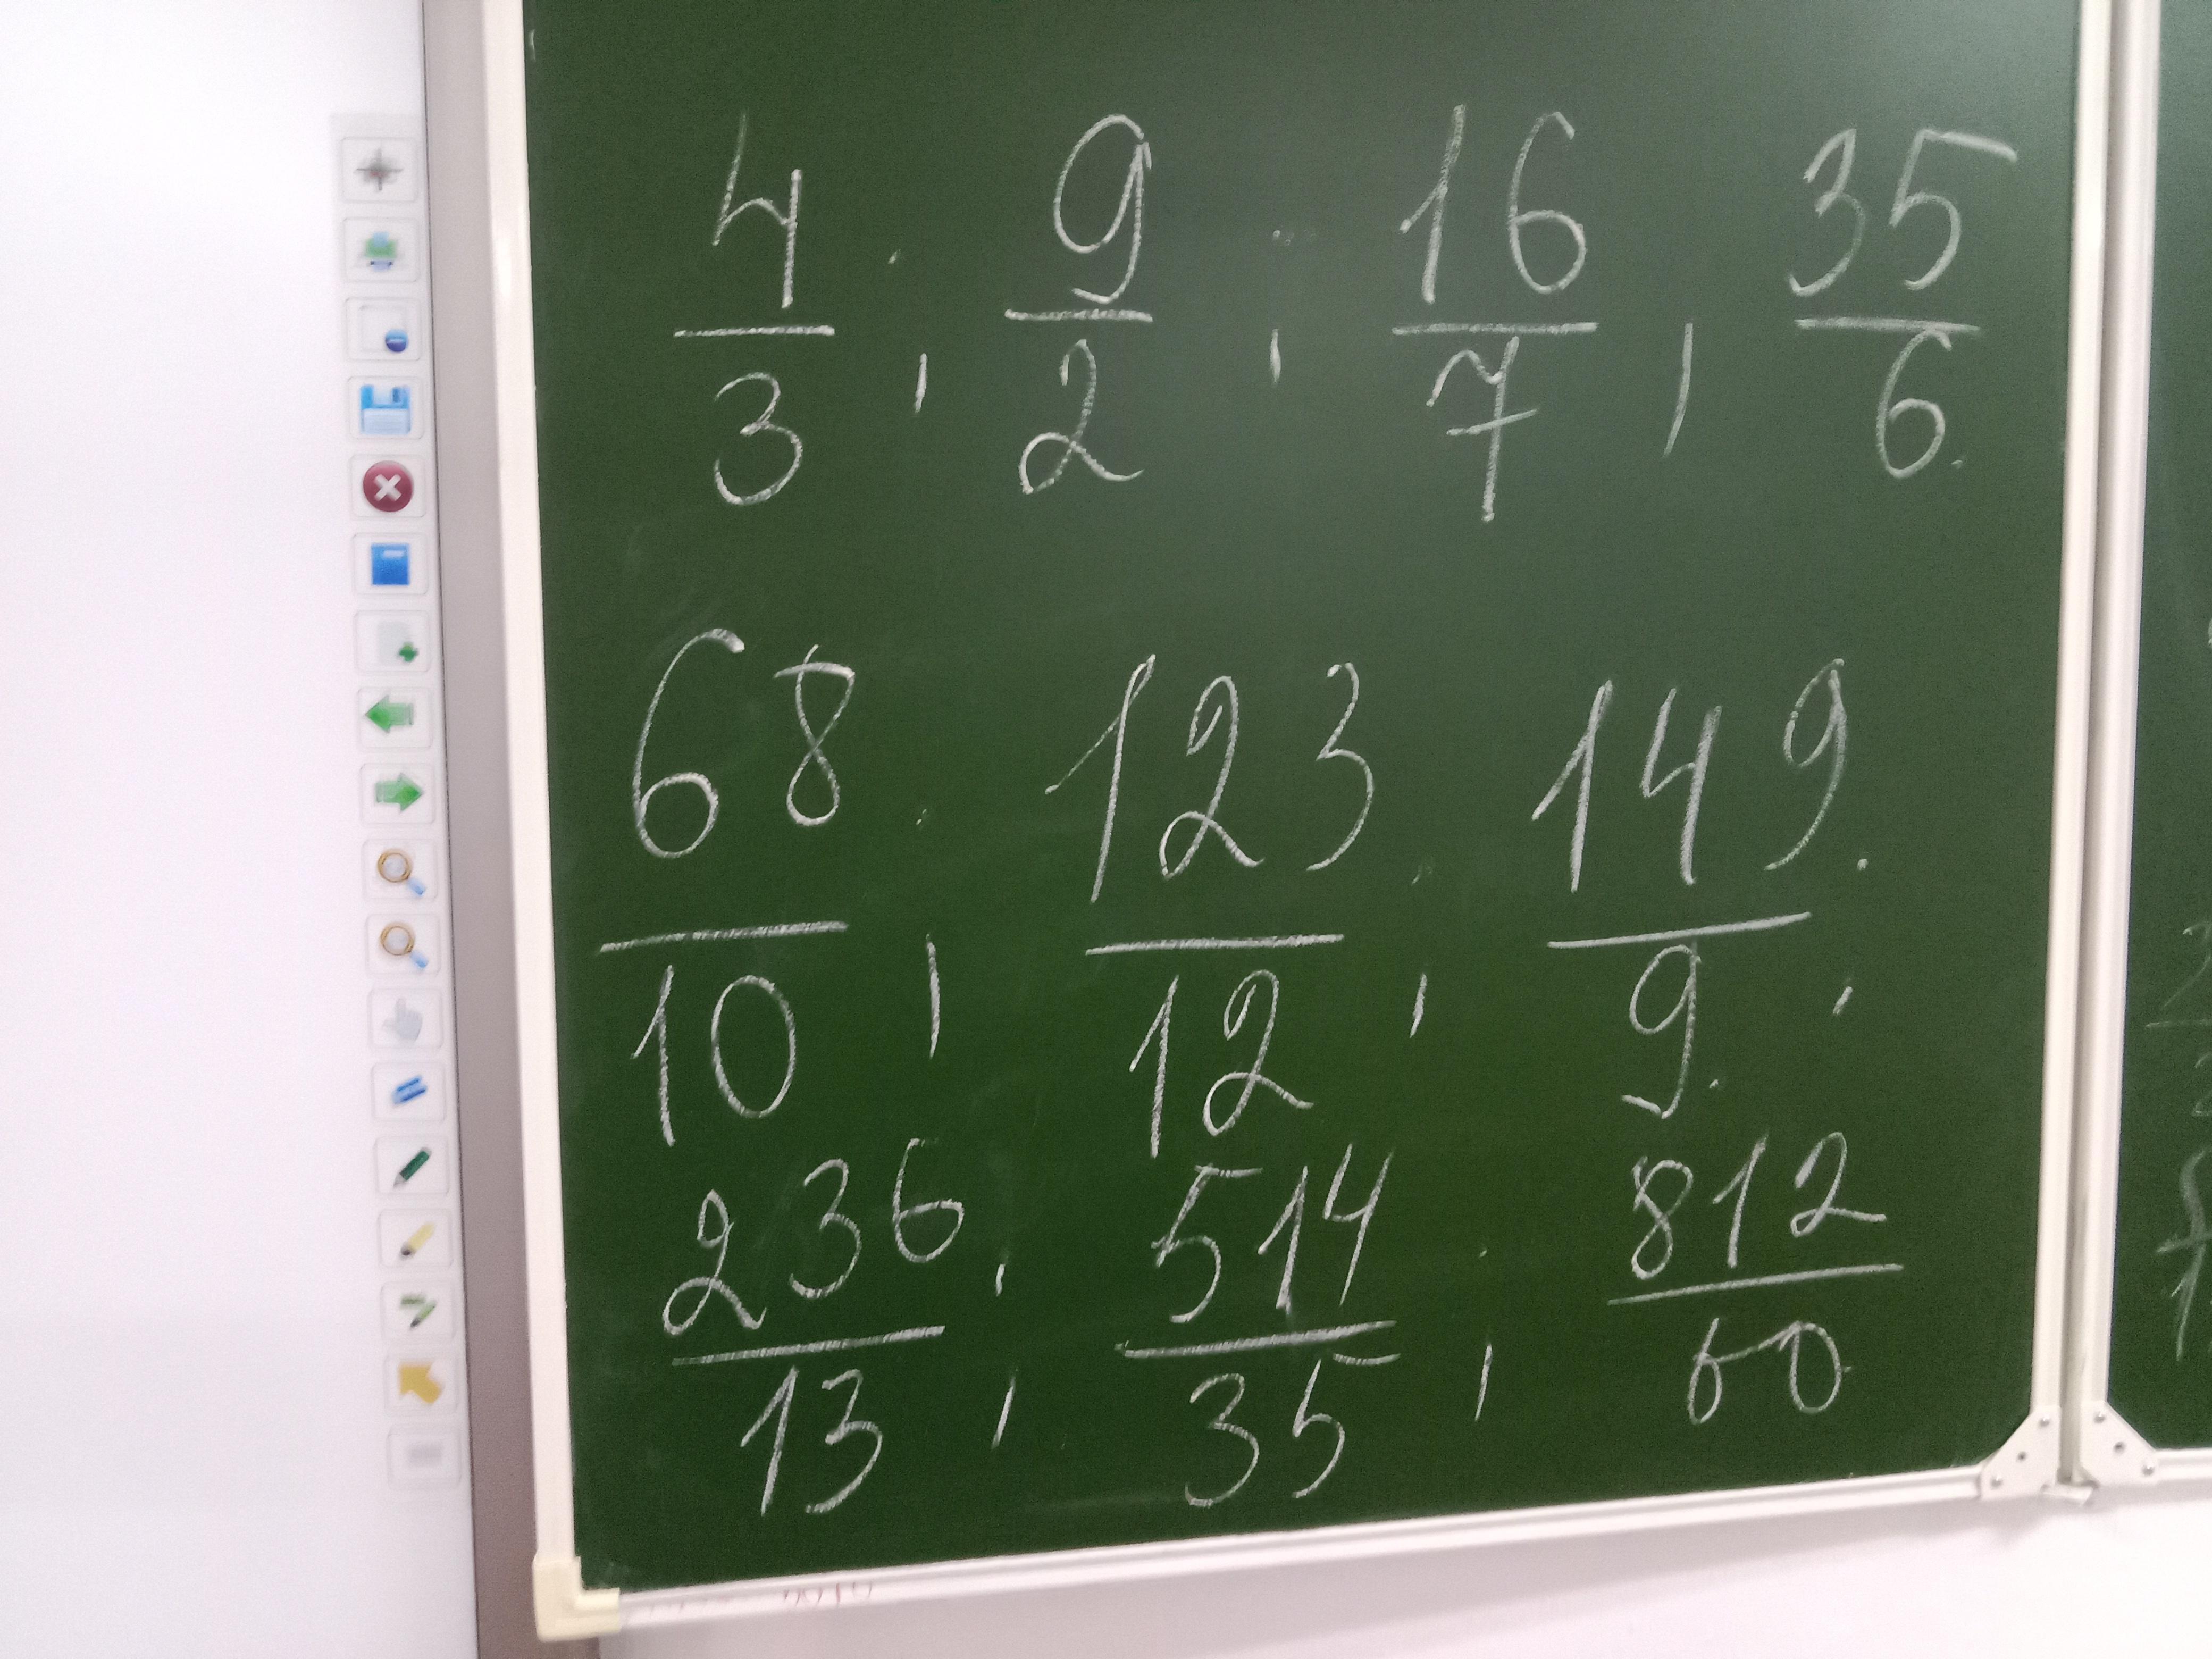 4/3 ; 9/2 ; 16/7 , 35/6.
68/10 ; 123/12 ; 149/9 ;
236/13 ; 514/35 ; 812/60